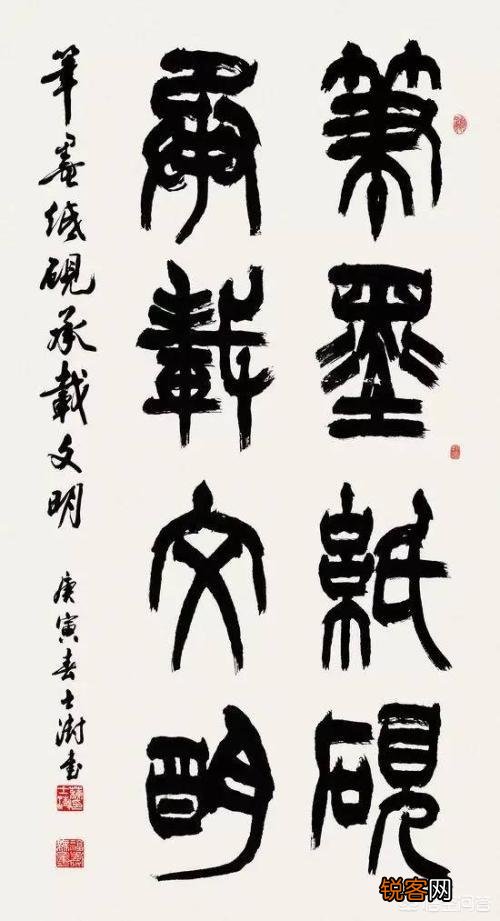 筆墨紙硯
承載文明
筆墨紙硯承載文明 庚寅春士澍書
锐客网